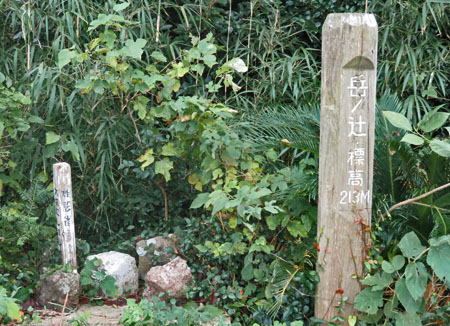 岳ノ辻
標高
213M